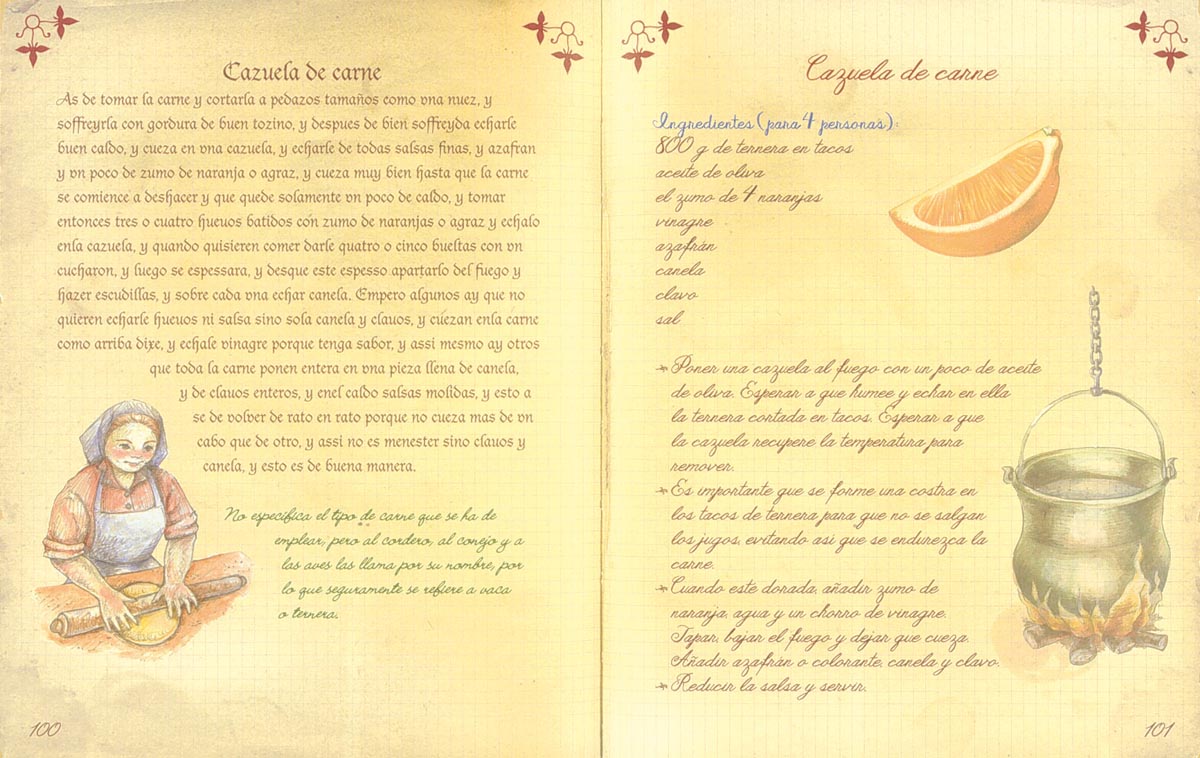 Cazuela de carne
As de tomar la carne y cortarla a pedazos tamaños como vna nuez, y
soffreyrla con gordura de buen tozino, y despues de bien soffreyda echarle
buen caldo, y cueza en vna cazuela, y echarle de todas salsas finas, y azafran
y vn poco de zumo de naranja o agraz, y cueza muy bien hasta que la carne
se comience a deshacer y que quede solamente vn poco de caldo, y tomar
entonces tres o cuatro hueuos batidos con zumo de naranjas o agraz y echalo
enla cazuela, y quando quisieren comer darle quatro o cinco bueltas con vn
cucharon, y luego se espessara, y desque este espesso apartarlo del fuego y
hazer escudillas, y sobre cada vna echar canela. Empero algunos ay que no
quieren echarle hueuos ni salsa sino sola canela y clauos, y cuezan enla carne
como arriba dixe, y echale vinagre porque tenga sabor, y assi mesmo ay otros
que toda la carne ponen entera en vna pieza llena de canela,
y de clauos enteros, y enel caldo salsas molidas, y esto a
se de volver de rato en rato porque no cueza mas de vn
cabo que de otro, y assi no es menester sino clauos y
canela, y esto es de buena manera.
No especifica el tipo de carne que se ha de
emplear, pero al cordero, al conejo y a
las aves las llama por su nombre, por
lo que seguramente se refiere a vaca
o ternera.
100
Cazuela de carne
Ingredientes (para 4 personas):
800 g de ternera en tacos
aceite de oliva
el zumo de 4 naranjas
vinagre
azafrán
canela
clavo
sal
Poner una cazuela al fuego con un poco de aceite
de oliva. Esperar a que humee y echar en ella
la ternera cortada en tacos. Esperar a que
la cazuela recupere la temperatura para
remover.
Es importante que se forme una costra en
los tacos de ternera para que no se salgan
los jugos, evitando asi que se endurezca la
carne.
Cuando este dorada, añadir zumo de
naranja, agua y un chorro de vinagre.
Tapar, bajar el fuego y dejar que cueza.
Añadir azafrán o colorante, canela y clavo.
Reducir la salsa y servir.
101